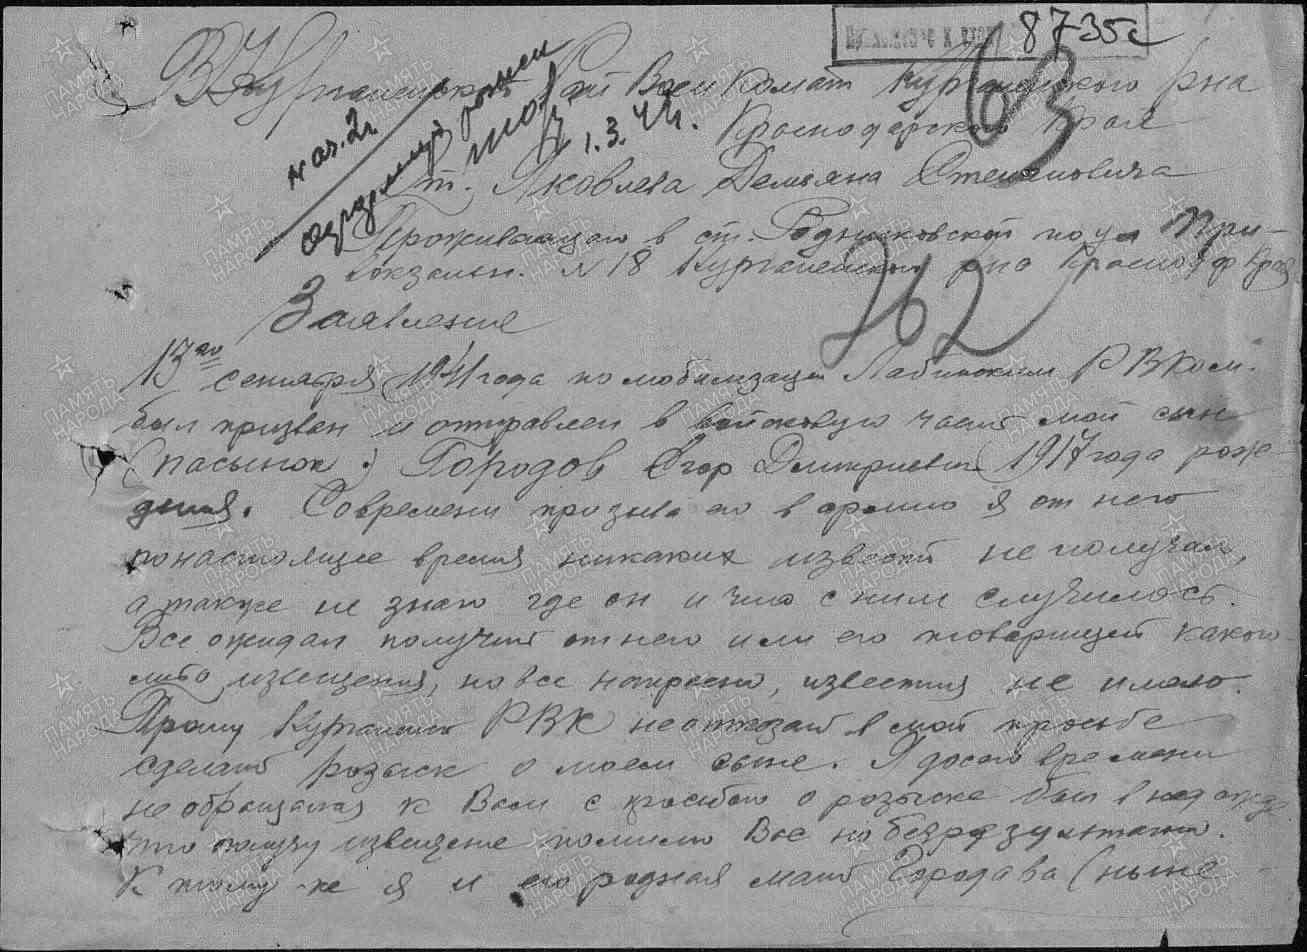 8735с
63
В Курганенский рай Военкомат Курганенского р-на
Краснодарского Края
наз. 2л.
розыск
1.3.44г.
От. Яковлева Демьяна Степановича
Проживающего в ст. Родниковской по ул При-
вокзальн. №18 Курганенского р-на Краснод Края
262
Заявление
13го сентября 1941 года по мобилизации Лабинским РВКом.
был призван и отправлен в войсковую часть мой сын
(пасынок) Городов Егор Дмитриевич 1917 года рож-
дения. Современи призыва его в армию я от него
понастоящее время никаких известий не получал,
а также не знаю где он и что с ним случилось.
Все ожидал получить от него или его товарищей какого-
либо извещения, но все напрасно, известия не имею.
Прошу Курганенск РВК неотказать в моей просьбе
сделать розыск о моем сыне. Я досего времени
необращался к Вам с просьбой о розыске был в надежде
что получу извещение помимо Вас но безрезультатно.
К тому-же я и его родная мать Городова (ныне
ПАМЯТЬ НАРОДА